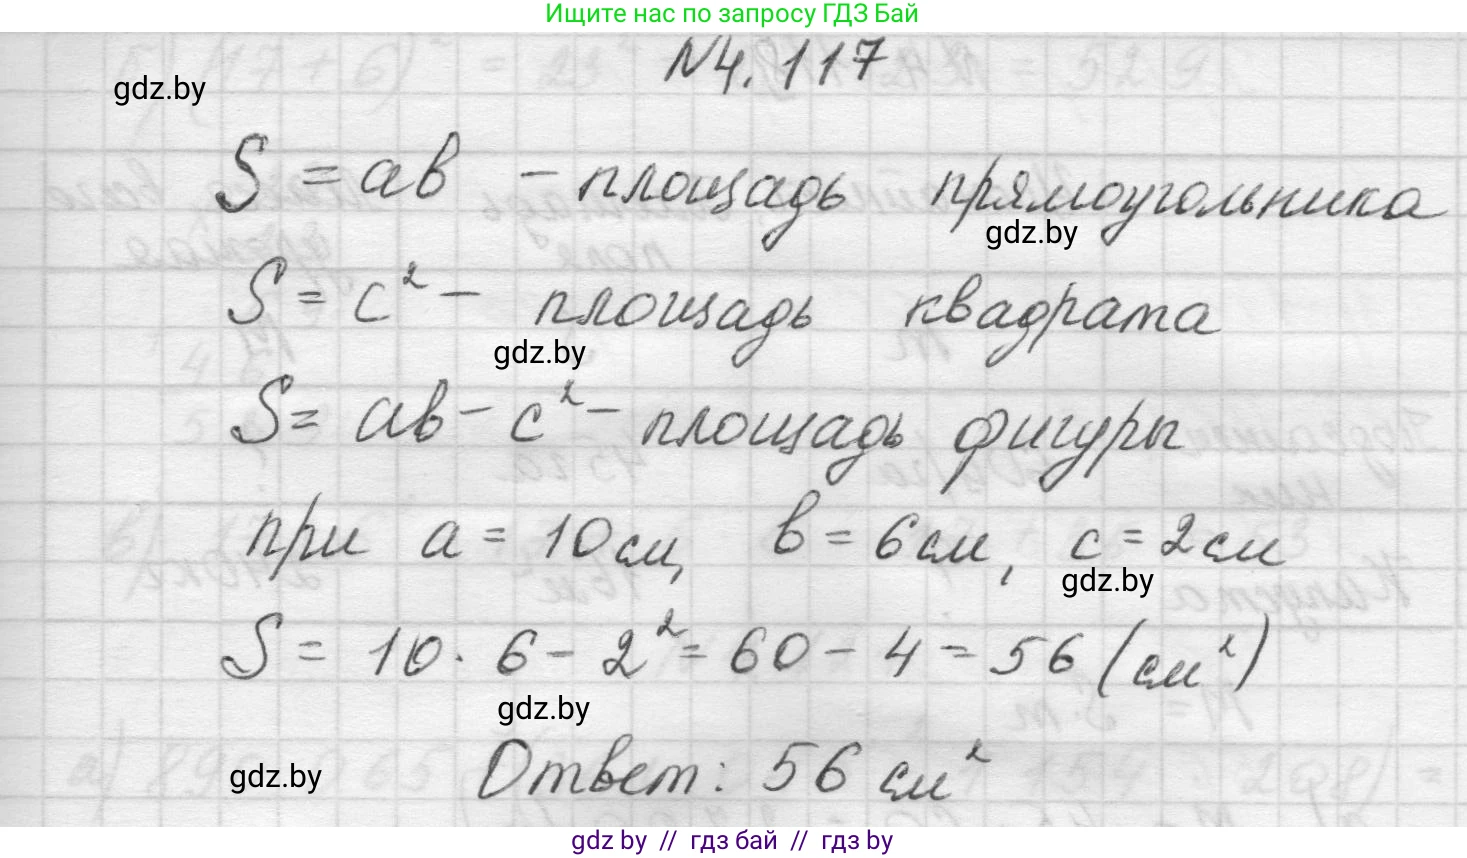 Ищите нас по запросу ГДЗ Бай
№4.117
gdz.by
S = ab – площадь прямоугольника
gdz.by
S = c² – площадь квадрата
gdz.by
S = ab – c² – площадь фигуры
при a = 10 см, b = 6 см, c = 2 см
gdz.by
S = 10 · 6 – 2² = 60 – 4 = 56 (см²)
gdz.by
Ответ: 56 см²
gdz.by
gdz by // гдз бай // гдз by